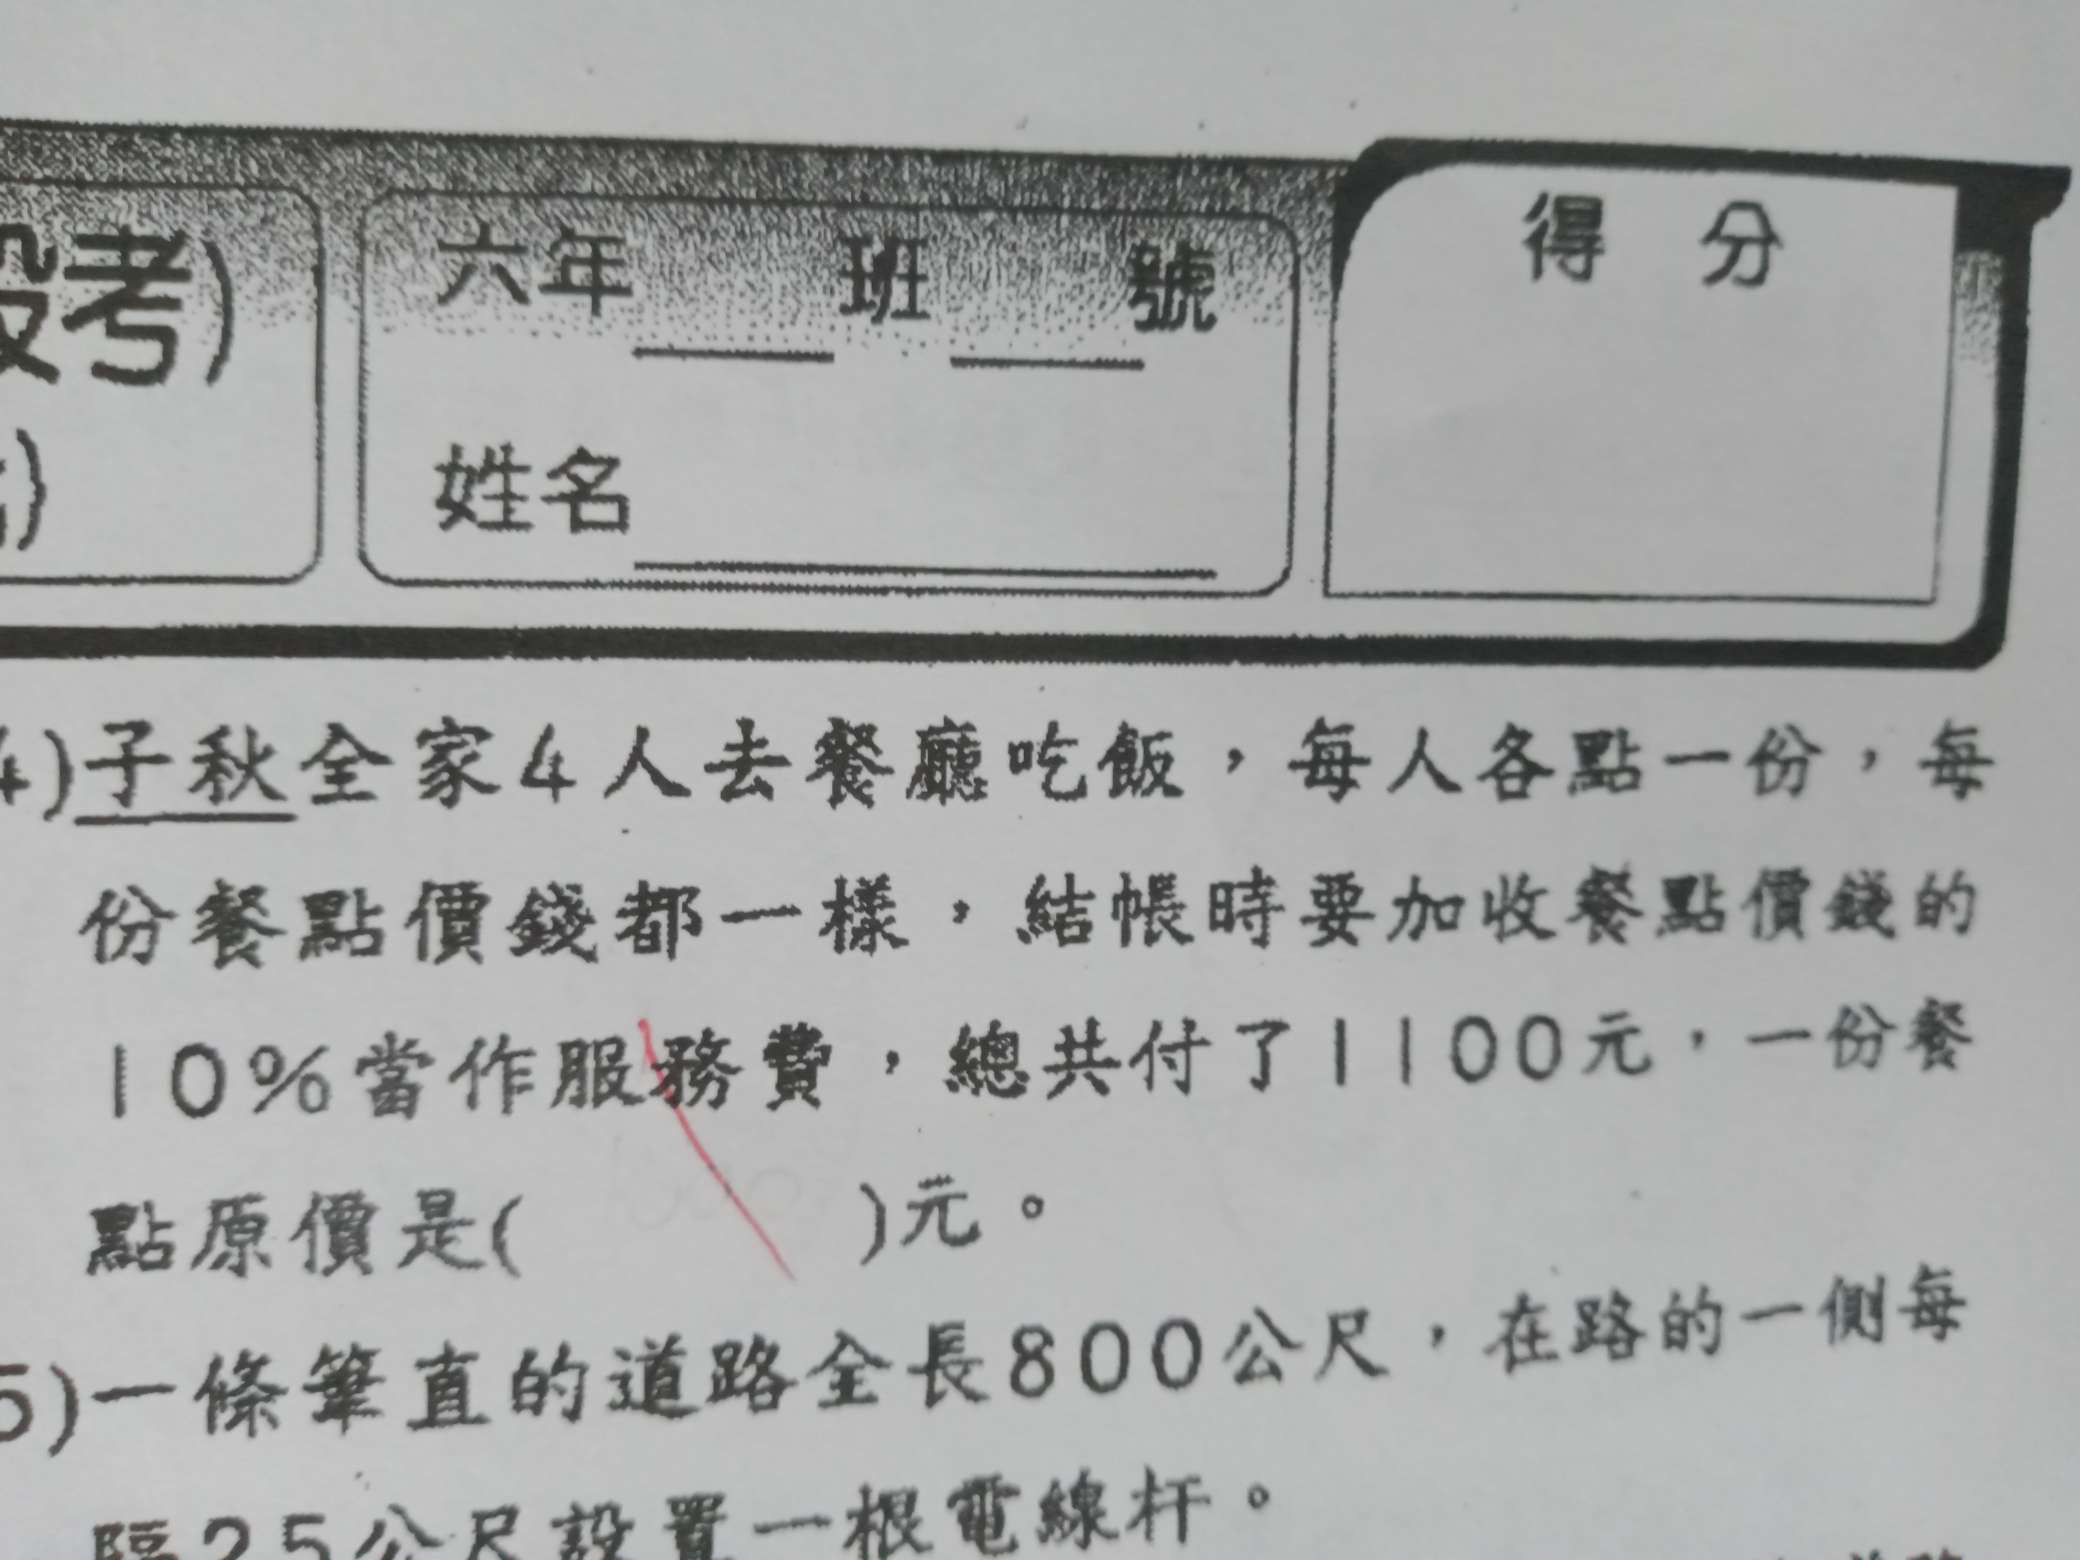 段考)
六年 班 號
得 分
姓名
4)子秋全家4人去餐廳吃飯，每人各點一份，每
份餐點價錢都一樣，結帳時要加收餐點價錢的
10%當作服務費，總共付了1100元，一份餐
點原價是( )元。
5)一條筆直的道路全長800公尺，在路的一側每
隔25公尺設置一根電線杆。